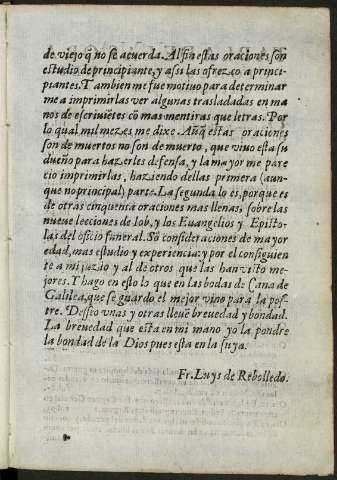 de viejo q̃ no se acuerda. Al fin estas oraciones son
estudio de principiante, y assi las ofrezco a princi-
piantes. Tambien me fue motiuo para determinar
me a imprimirlas ver algunas trasladadas en ma
nos de escriuiẽtes cõ mas mentiras que letras. Por
lo qual mil vezes me dixe. Aũq̃ estas oraciones
son de muertos no son de muerto, que viuo esta su
dueño para hazerles defensa, y la mayor me pare
cio imprimirlas, haziendo dellas primera (aun-
que no principal) parte. La segunda lo es, porque es
de otras cinquenta oraciones mas llenas, sobre las
nueue lecciones de Iob, y los Euangelios y Episto-
las del oficio funeral. Sõ consideraciones de mayor
edad, mas estudio y experiencia: y por el consiguien
te a mi juzio y al de otros que las han visto me-
jores. Y hago en esto lo que en las bodas de Cana de
Galilea, que se guardo el mejor vino para la pos-
tre. Desseo vnas y otras lleuẽ breuedad y bondad.
La breuedad que esta en mi mano yo la pondre
la bondad de la Dios pues esta en la suya.
Fr. Luys de Rebolledo.